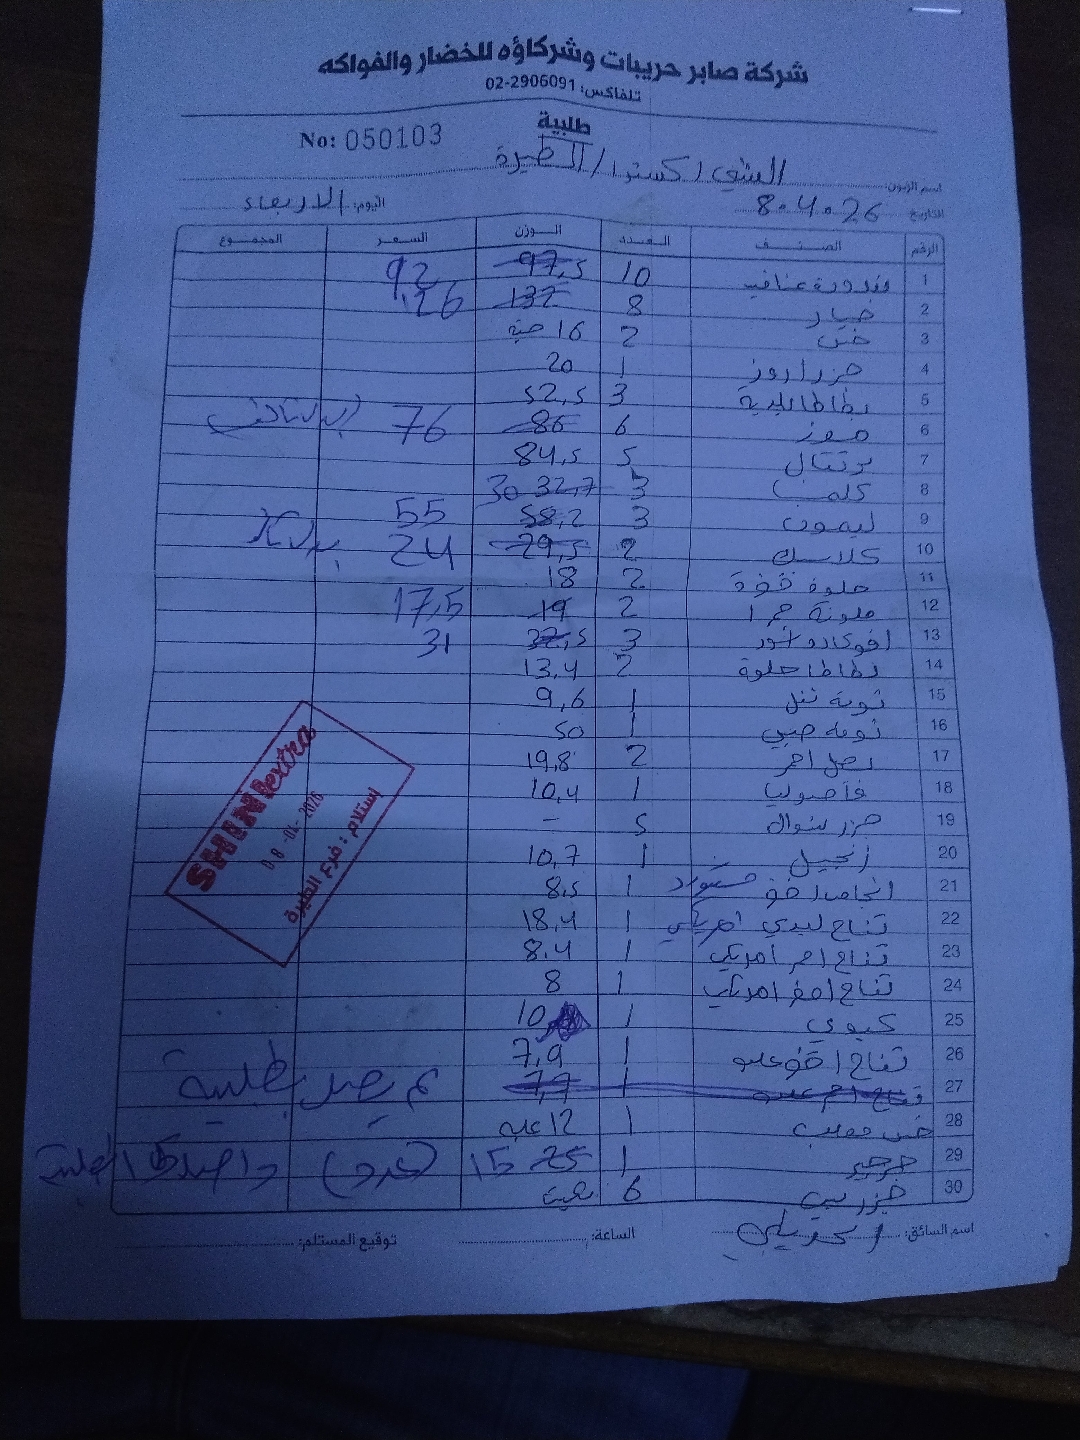 شركة صابر حريبات وشركاؤه للخضار والفواكه
تلفاكس: 02-2906091
طلبية
No: 050103
اسم الزبون: الشني اكسترا / الطيرة
التاريخ 8.4.26 اليوم: الاربعاء
الرقم الصنف العدد الوزن السعر المجموع
1 بندورة عناقيد 10 97,5 92
2 خيار 8 132 126
3 خس 2 16 حبة
4 جزر اروز 1 20
5 بطاطا بلدية 3 52,5
6 موز 6 86 76
7 برتقال 5 84,5
8 كلمنتينا 3 32,7 30
9 ليمون 3 58,2 55
10 كلاسيك 2 29,5 24
11 حلوة 2 18
12 ملونة 2 19 17,5
13 افوكادو 3 32,5 31
14 بطاطا حلوة 2 13,4
15 ثومة تنل 1 9,6
16 ثومة صيني 1 50
17 بصل احمر 2 19,8
18 فاصوليا 1 10,4
19 جزر شوال 5 -
20 زنجبيل 1 10,7
21 انجاص اخضر مستورد 1 8,5
22 تفاح ليدي امريكي 1 18,4
23 تفاح احمر امريكي 1 8.4
24 تفاح اصفر امريكي 1 8
25 كيوي 1 10
26 تفاح اخضر 1 7,9
27 تفاح احمر 1 7,7
28 خس 1 12 علبة
29 جرجير 1 25 15
30 جزر بيبي 6
SHINI extra
08-04-2026
إستلام : فرع الطيرة
اسم السائق: الساعة: توقيع المستلم: